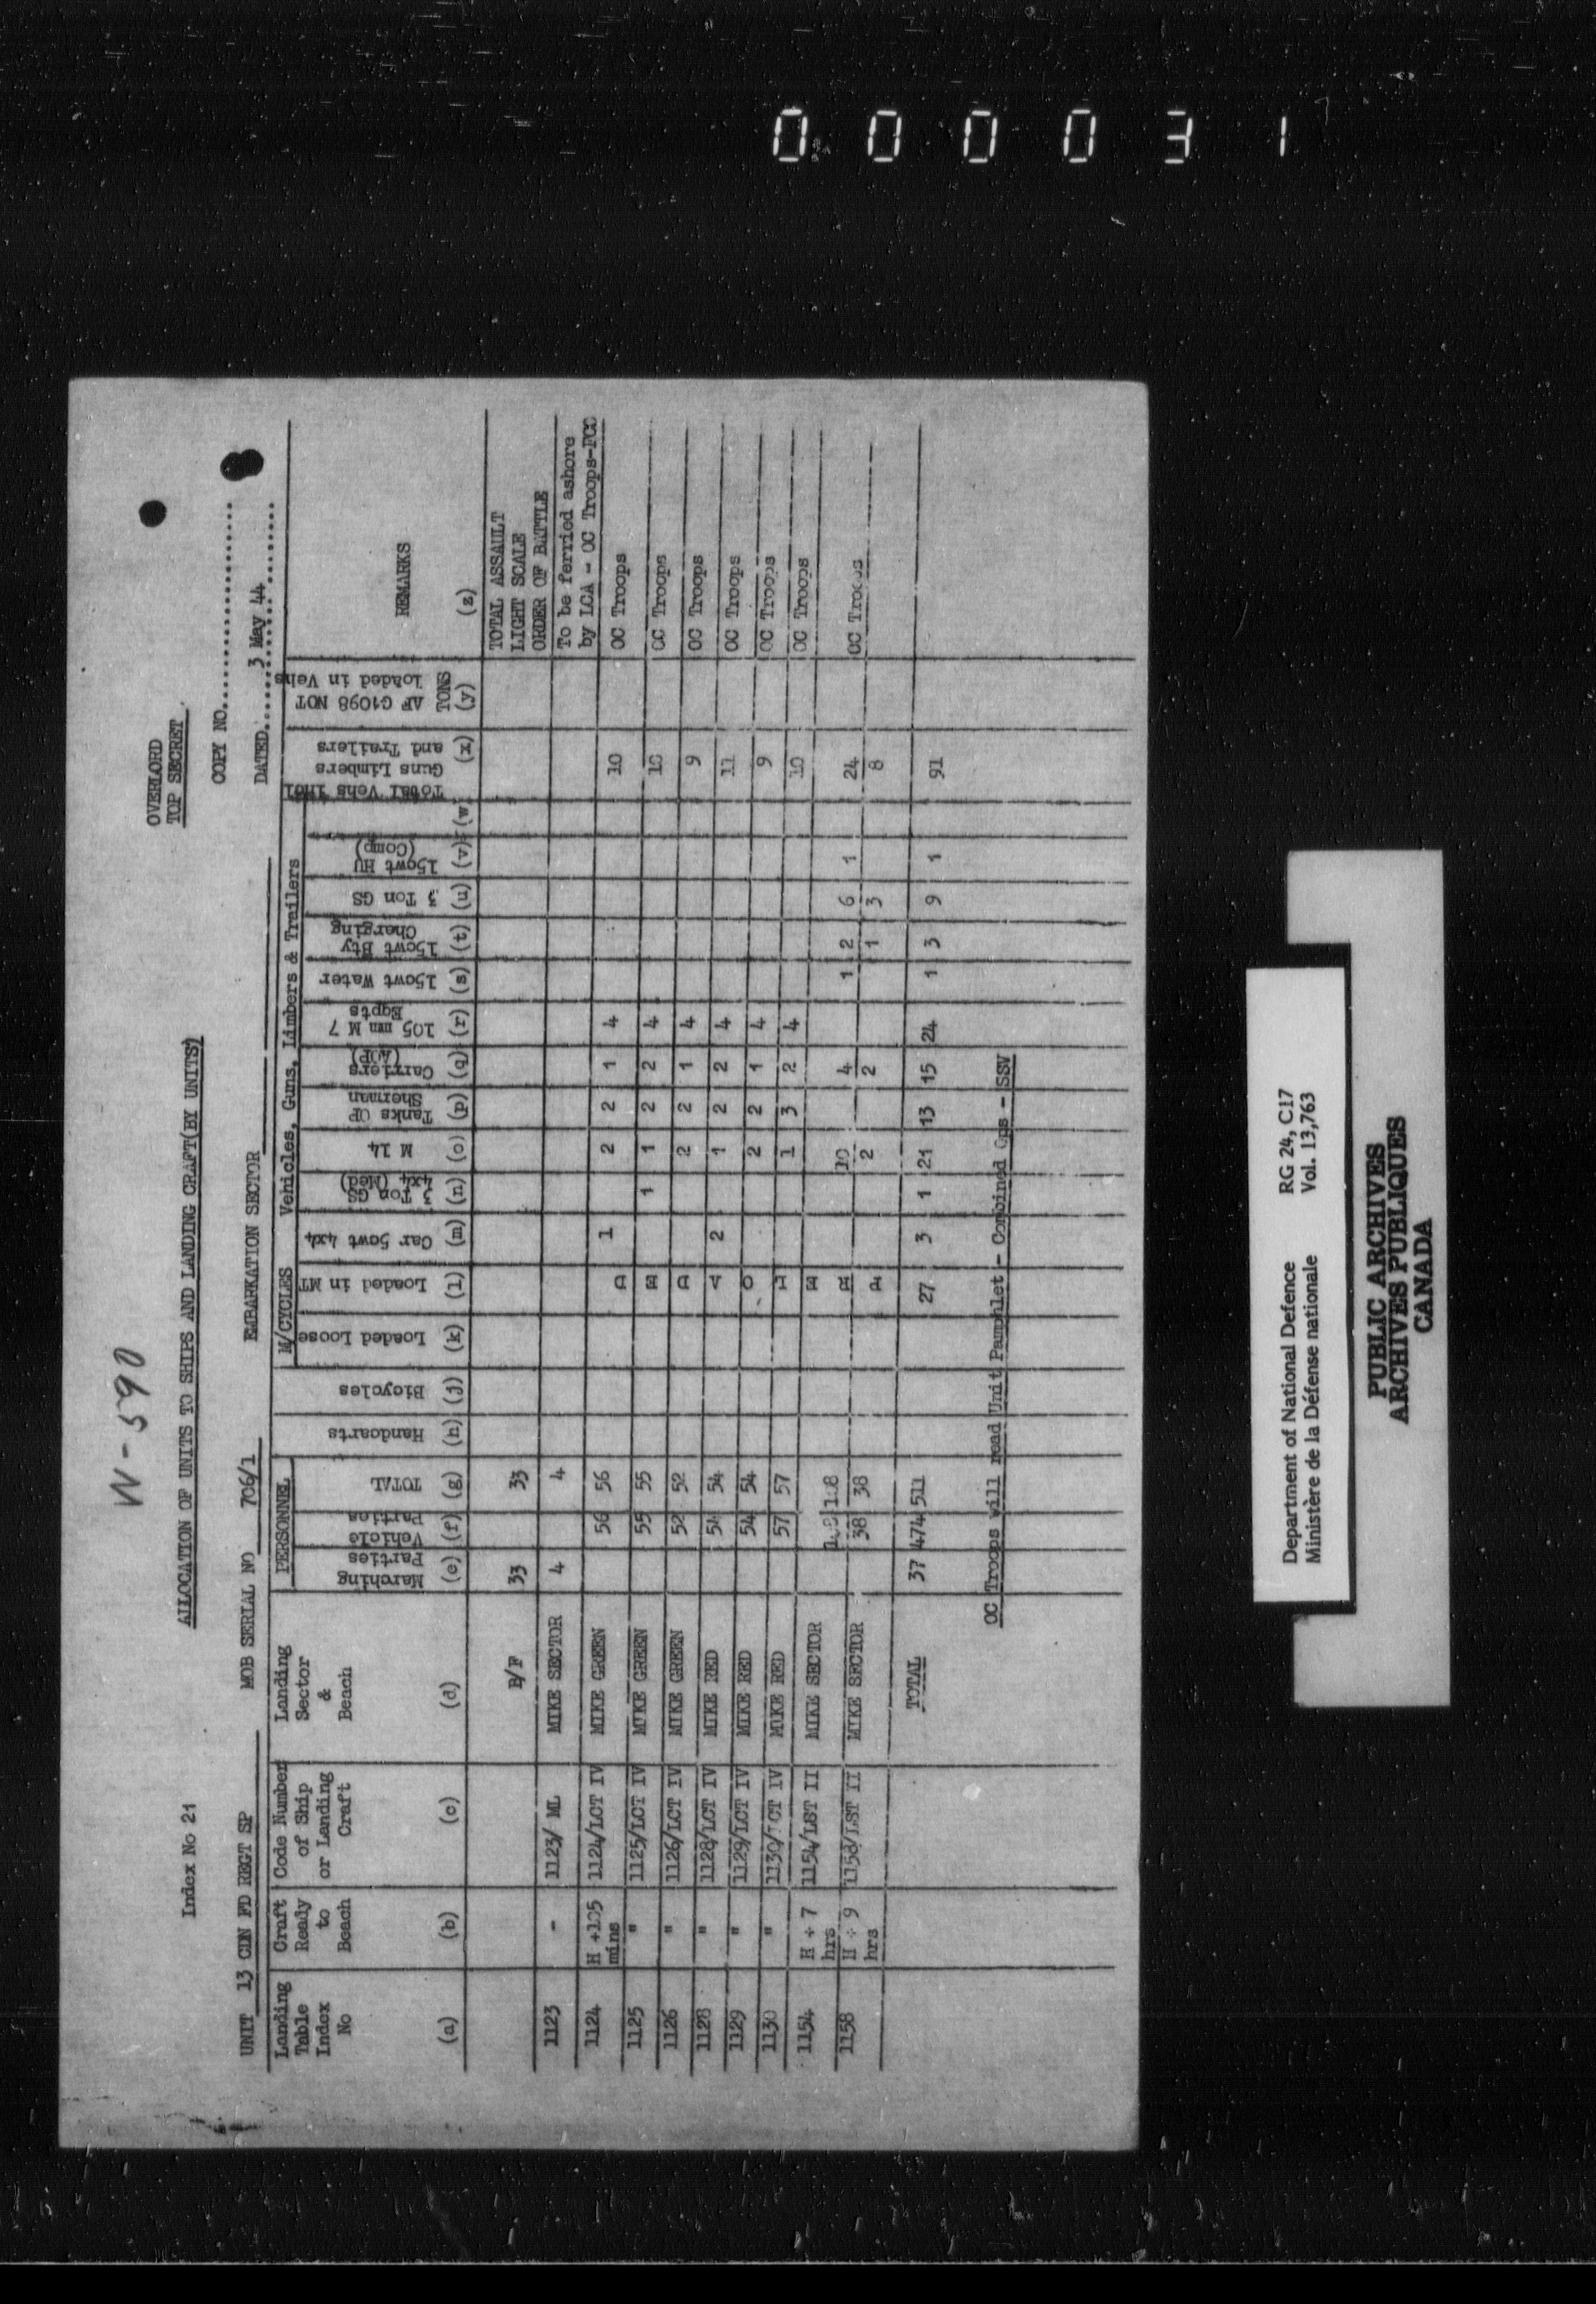 000031
W-590
OVERLORD
TOP SECRET
Index No 21
ALLOCATION OF UNITS TO SHIPS AND LANDING CRAFT(BY UNITS)
COPY NO
UNIT 13 CDN FD REGT SP MOB SERIAL NO 706/1 EMBARKATION SECTOR DATED 3 May 44
Landing Table Index No (a)
Craft Ready to Beach (b)
Code Number of Ship or Landing Craft (c)
Landing Sector & Beach (d)
PERSONNEL
Marching Parties (e)
Vehicle Parties (f)
TOTAL (g)
Handcarts (h)
Bicycles (j)
M/CYCLES
Loaded Loose (k)
Loaded in MT (l)
Vehicles, Guns, Limbers & Trailers
Car 5cwt 4x4 (m)
3 Ton GS 4x4 (Med) (n)
M 14 (o)
Tanks OP Sherman (p)
Carriers (AOP) (q)
105 mm M 7 Eqpts (r)
15cwt Water (s)
15cwt Bty Charging (t)
3 Ton GS (u)
15cwt HU (Comp) (v)
(w)
Total Vehs incl Guns Limbers and Trailers (x)
AF G1098 NOT loaded in Vehs TONS (y)
REMARKS (z)
B/F 33 33 TOTAL ASSAULT LIGHT SCALE ORDER OF BATTLE
1123 - 1123/ ML MIKE SECTOR 4 4 To be ferried ashore by LCA - OC Troops-FOO
1124 H +105 mins 1124/LCT IV MIKE GREEN 56 56 1 2 2 1 4 10 OC Troops
1125 " 1125/LCT IV MIKE GREEN 55 55 1 1 2 2 4 10 OC Troops
1126 " 1126/LCT IV MIKE GREEN 52 52 2 2 1 4 9 OC Troops
1128 " 1128/LCT IV MIKE RED 54 54 2 1 2 2 4 11 OC Troops
1129 " 1129/LCT IV MIKE RED 54 54 2 2 1 4 9 OC Troops
1130 " 1130/LCT IV MIKE RED 57 57 1 3 2 4 10 OC Troops
1154 H + 7 hrs 1154/LST II MIKE SECTOR 10 4 1 2 6 1 24 OC Troops
1158 H + 9 hrs 1158/LST II MIKE SECTOR 38 38 2 2 1 3 8
TOTAL 37 474 511 27 3 1 21 13 15 24 1 3 9 1 91
OC Troops will read Unit Pamphlet - Combined Ops - SSV
Department of National Defence RG 24, C17
Ministère de la Défense nationale Vol. 13,763
PUBLIC ARCHIVES
ARCHIVES PUBLIQUES
CANADA